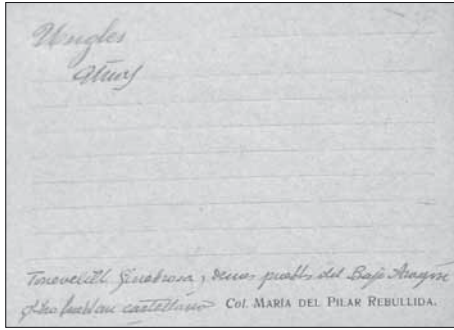 Ungles
Torrevelilla, Ginebrosa, demas pueblos del Bajo Aragon
hablan castellano
COL. MARÍA DEL PILAR REBULLIDA.